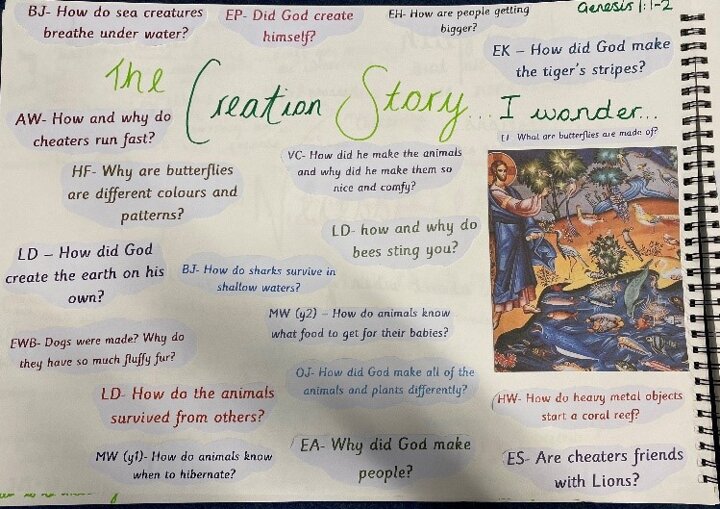 Genesis 1:1-2
BJ- How do sea creatures
breathe under water?
EP- Did God create
himself?
EH- How are people getting
bigger?
EK – How did God make
the tiger's stripes?
The Creation Story...I wonder...
AW- How and why do
cheaters run fast?
What are butterflies are made of?
HF- Why are butterflies
are different colours and
patterns?
VC- How did he make the animals
and why did he make them so
nice and comfy?
LD- how and why do
bees sting you?
LD – How did God
create the earth on his
own?
BJ- How do sharks survive in
shallow waters?
MW (y2) – How do animals know
what food to get for their babies?
EWB- Dogs were made? Why do
they have so much fluffy fur?
OJ- How did God make all of the
animals and plants differently?
LD- How do the animals
survived from others?
HW- How do heavy metal objects
start a coral reef?
MW (y1)- How do animals know
when to hibernate?
EA- Why did God make
people?
ES- Are cheaters friends
with Lions?